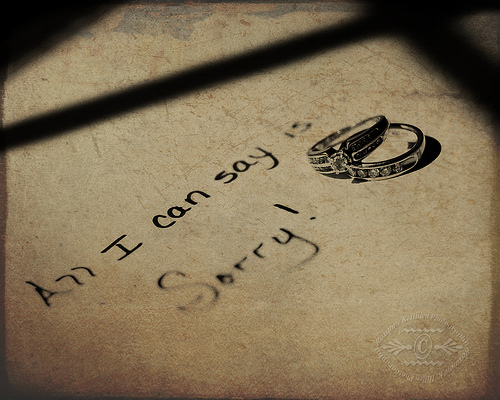 All I can say is
Sorry!